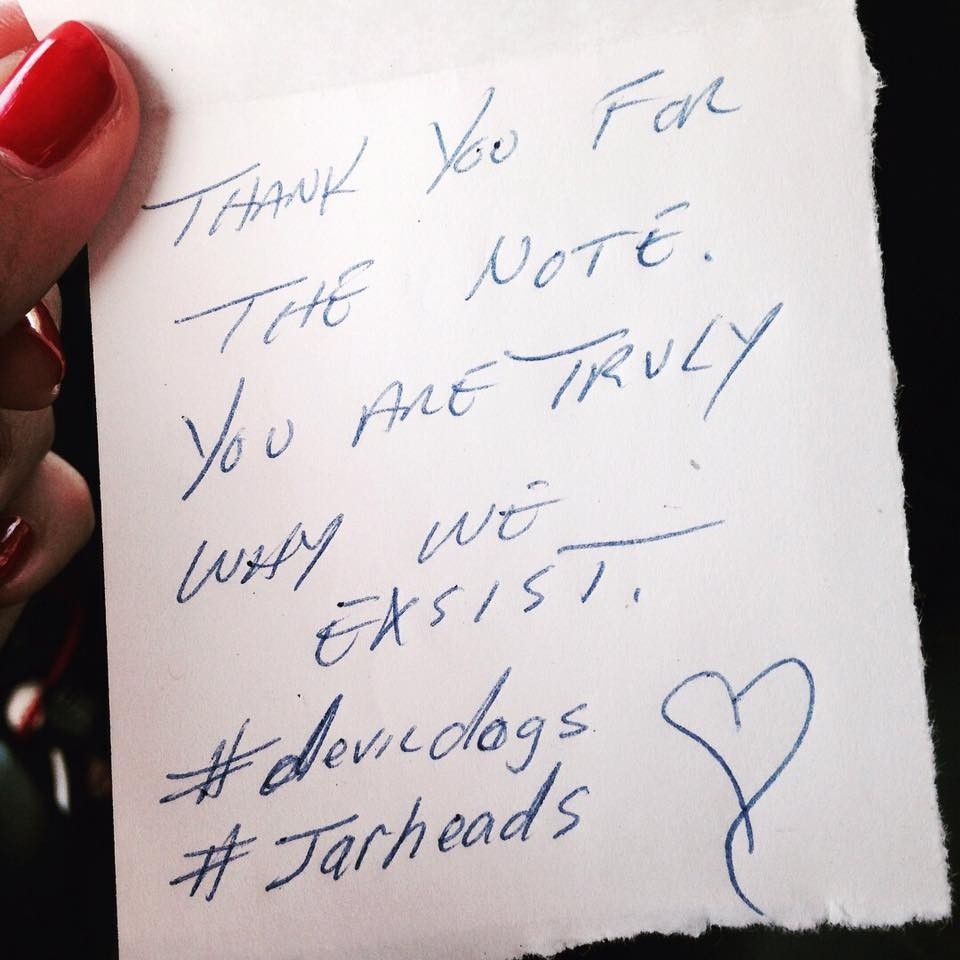 THANK YOU FOR
THE NOTE.
YOU ARE TRULY
WHY WE
EXSIST.
#devildogs
#Jarheads